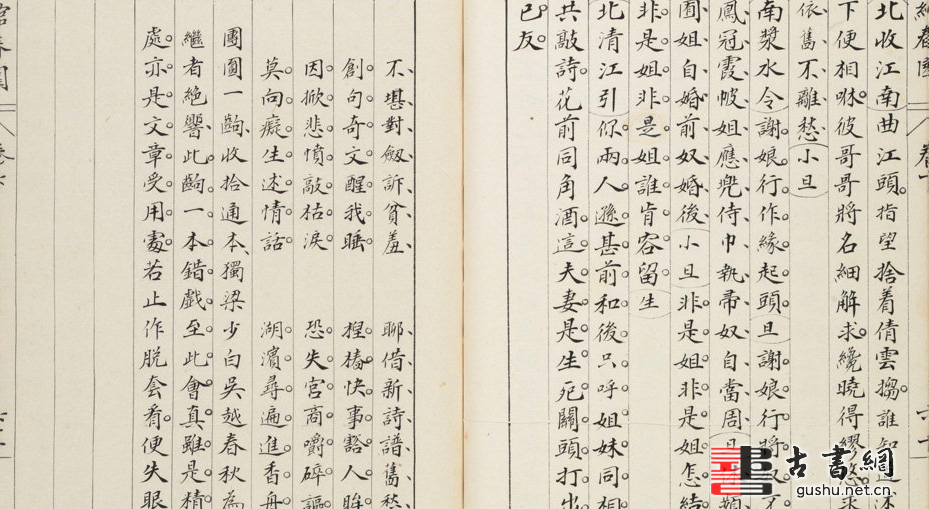 北收江南曲江頭指望捨着倩雲搊誰知
下便相咻彼哥哥將名細解求纔曉得繆
依舊不離愁小旦
南漿水令謝娘行作緣起頭旦謝娘行將奴
鳳冠霞帔姐應兜侍巾執帚奴自當周旦
圓姐自婚前奴婚後小旦非是姐非是姐怎結
非是姐非是姐誰肯容留生
北清江引你兩人遜甚前和後只呼姐妹同相
共敲詩花前同角酒這夫妻是生死關頭打出
已反
不堪對劔訴貧羞 聊借新詩譜舊愁
創句奇文醒我睡 揑樁快事豁人眸
因掀悲憤敲枯淚 恐失宮商嚼碎謳
莫向癡生述情話 湖濱尋遍進香舟
團圓一齣收拾通本獨梁少白吳越春秋為
繼者絕響此齣一本錯戲至此會真雖是精
處亦是文章受用處若止作脫套看便失眼
古書網
gushu.net.cn